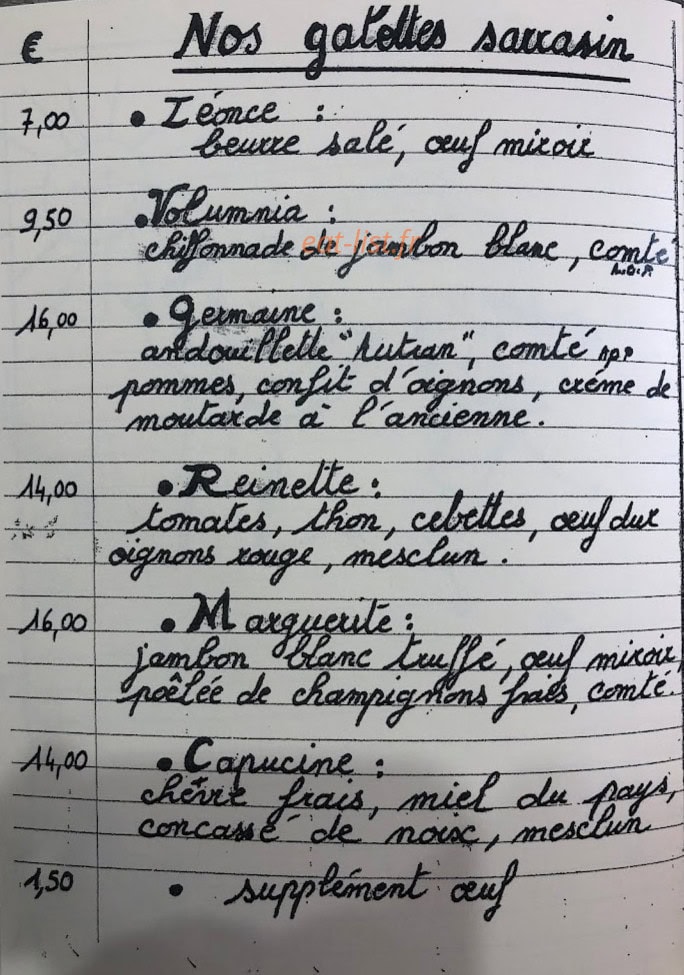 € Nos galettes sarrasin
7,00 • Léonce :
beurre salé, œuf miroir
9,50 •Volumnia :
chiffonnade de jambon blanc, comté
A.O.P
eat-list.fr
16,00 • Germaine :
andouillette "Autran", comté AOP
pommes, confit d'oignons, créme de
moutarde à l'ancienne.
14,00 • Reinette :
tomates, thon, cebettes, œuf dur
oignons rouge, mesclun.
16,00 • Marguerite :
jambon blanc truffé, œuf miroir,
poêlée de champignons frais, comté.
14,00 • Capucine :
chèvre frais, miel du pays,
concassé de noix, mesclun
1,50 • supplément œuf